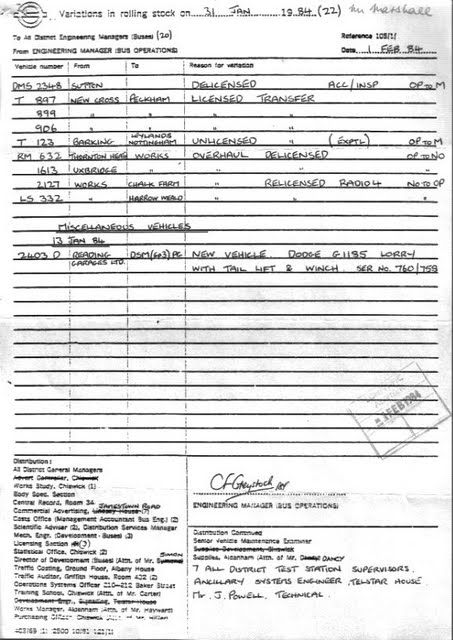 Variations in rolling stock on 31 JAN 1984 (22) Mr Marshall
To All District Engineering Managers (Buses) (20) Reference 105/1/
From ENGINEERING MANAGER (BUS OPERATIONS) Date 1 FEB 84
Vehicle number From To Reason for variation
DMS 2348 SUTTON DELICENSED ACC/INSP OP TO M
T 897 NEW CROSS PECKHAM LICENSED TRANSFER
899 " " " "
906 " " " "
T 123 BARKING WEYLANDS NOTTINGHAM UNLICENSED " (EXPTL) OP TO M
RM 632 THORNTON HEATH WORKS OVERHAUL DELICENSED OP TO NO
1613 UXBRIDGE " " " "
2127 WORKS CHALK FARM " RELICENSED RADIO 4 NO TO OP
LS 332 " HARROW WEALD " " "
MISCELLANEOUS VEHICLES
13 JAN 84
2403 D READING GARAGES LTD. DSM(43)PC NEW VEHICLE. DODGE G1185 LORRY
WITH TAIL LIFT & WINCH. SER No. 760/759
1 FEB 1984
Distribution:
All District General Managers
Advert Controller, Chiswick
Works Study, Chiswick (1)
Body Spec. Section
Central Record, Room 34 JAMESTOWN ROAD
Commercial Advertising, Lindsey House (7)
Costs Office (Management Accountant Bus Eng.) (2)
Scientific Adviser (2), Distribution Services Manager
Mech. Engr. (Development - Buses) (3)
Licensing Section (3)
Statistical Office, Chiswick (2) SIMON
Director of Development (Buses) (Attn. of Mr.
Traffic Costing, Ground Floor, Albany House
Traffic Auditor, Griffith House, Room 402 (2)
Operations Systems Officer 210-212 Baker Street
Training School, Chiswick (Attn. of Mr. Carter)
Development Engr., Signaling, Telstar House
Works Manager, Aldenham (Attn. of Mr. Hayward)
Purchasing Officer, Chiswick (Attn. of Mr.
ENGINEERING MANAGER (BUS OPERATIONS)
Distribution Continued
Senior Vehicle Maintenance Examiner
Supplies Development, Chiswick
Supplies, Aldenham (Attn. of Mr. DANCY
7 ALL DISTRICT TEST STATION SUPERVISORS.
ANCILLARY SYSTEMS ENGINEER TELSTAR HOUSE.
Mr. J. POWELL. TECHNICAL.